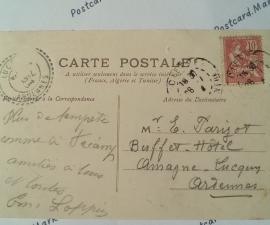 CARTE POSTALE
A utiliser seulement dans le service intérieur
(France, Algérie et Tunisie)
à la Correspondance
Adresse du Destinataire
Plus de tempête
comme à Fécamp
amitiés à tous
et toutes
Mr E. Parizot
Buffet-Hôtel
Amagne-Lucquy
Ardennes
10
Postcard.Mar